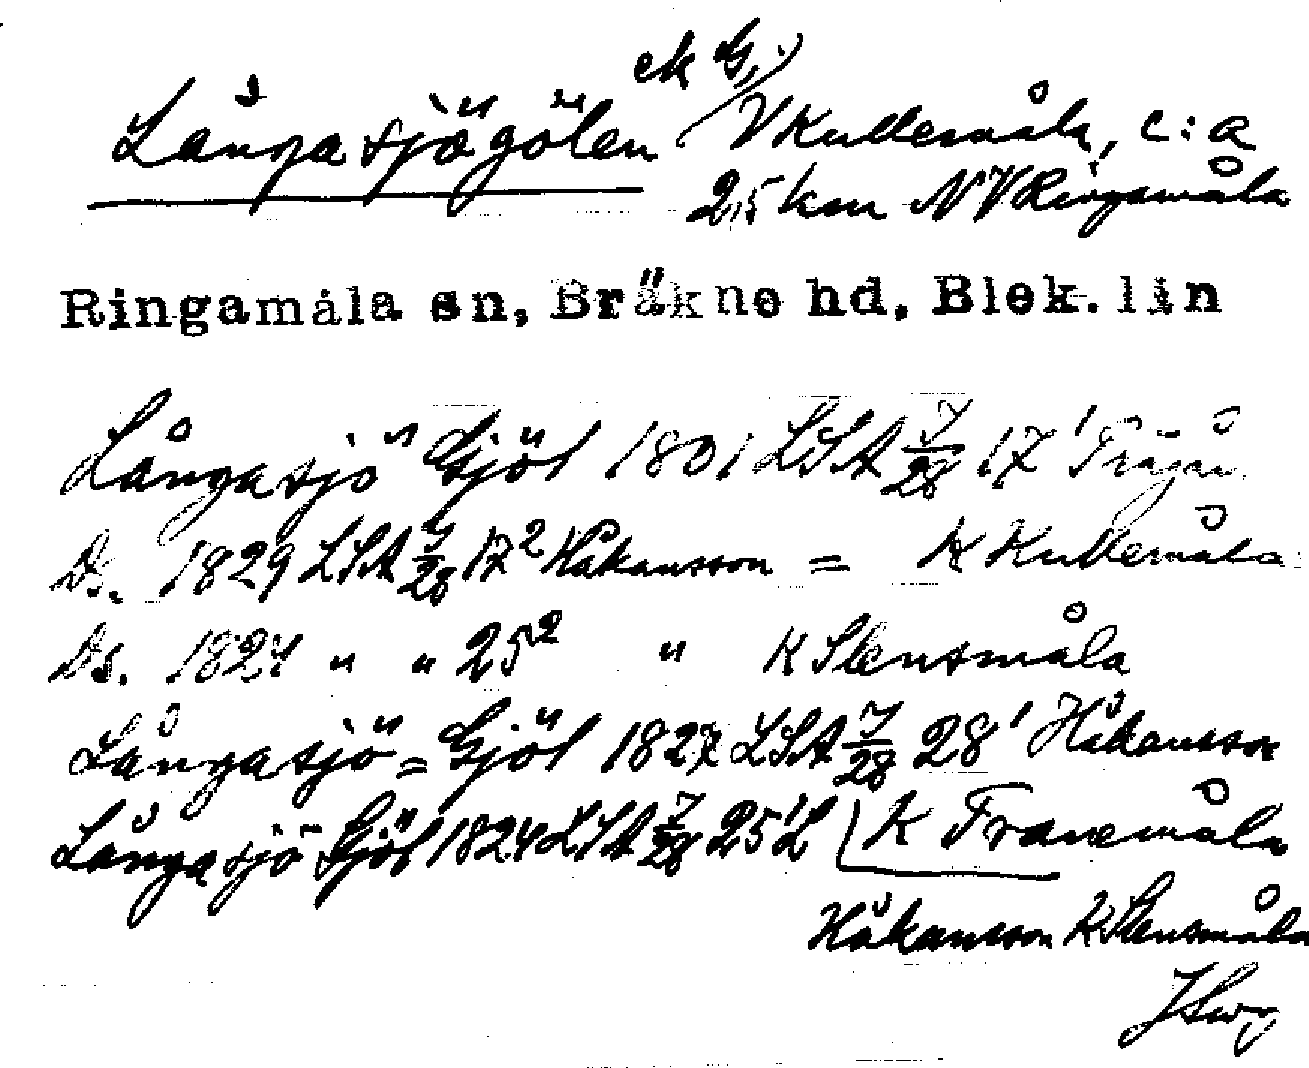 ek G.)
Långasjögölen V Kullemåla, c:a
2,5 km NV Ringamåla
Ringamåla sn, Bräkne hd, Blek. län
Långasjö Gjöl 1801 LSA J/28 17¹
Ds. 1829 LSA J/28 17² Håkansson = K Kullemåla
Ds. 1824 " " 25² " K Slensmåla
Långasjö = Gjöl 1827 LSA J/28 28¹ Håkansson
Långasjö Gjöl 1824 LSA J/28 25¹ K Franemåla
Håkansson K Slensmåla